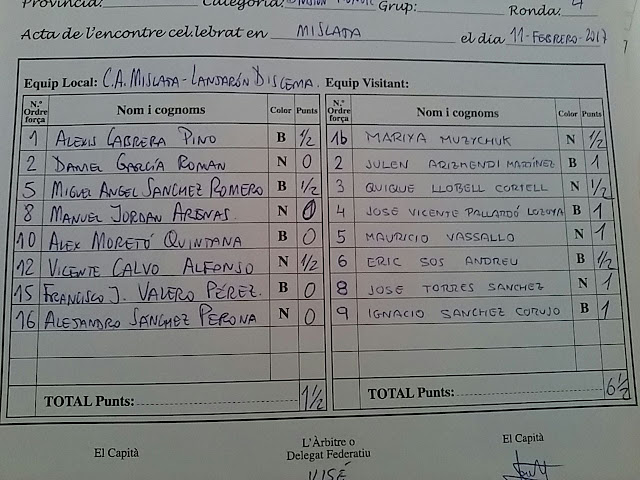 Província: Categoria: Grup: Ronda: 4
Acta de l'encontre cel.lebrat en MISLATA el dia 11-FEBRERO-2017
Equip Local: C.A. MISLATA-LANJARÓN DISCEMA. Equip Visitant:
N.º Ordre força Nom i cognoms Color Punts N.º Ordre força Nom i cognoms Color Punts
1 ALEXIS CABRERA PINO B 1/2 1b MARIYA MUZYCHUK N 1/2
2 DANIEL GARCÍA ROMAN N 0 2 JULEN ARIZMENDI MARTÍNEZ B 1
5 MIGUEL ANGEL SANCHEZ ROMERO B 1/2 3 QUIQUE LLOBELL CORTELL N 1/2
8 MANUEL JORDAN ARENAS. N 0 4 JOSE VICENTE PALLARDÓ LOZOYA B 1
10 ALEX MORETÓ QUINTANA B 0 5 MAURICIO VASSALLO N 1
12 VICENTE CALVO ALFONSO N 1/2 6 ERIC SOS ANDREU B 1/2
15 FRANCISCO J. VALERO PÉREZ. B 0 8 JOSE TORRES SANCHEZ N 1
16 ALEJANDRO SÁNCHEZ PERONA N 0 9 IGNACIO SANCHEZ CORUJO B 1
TOTAL Punts: 1 1/2 TOTAL Punts: 6 1/2
El Capità L'Àrbitre o Delegat Federatiu El Capità